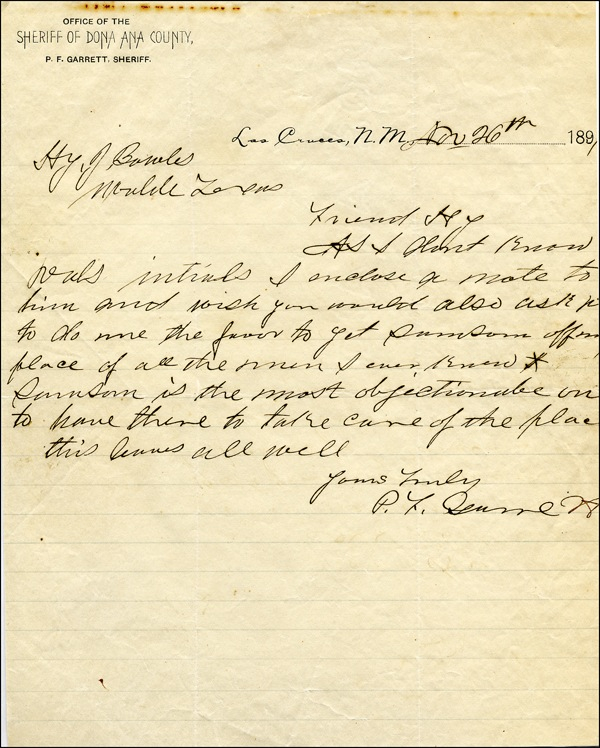 OFFICE OF THE
SHERIFF OF DONA ANA COUNTY,
P. F. GARRETT, SHERIFF.
Las Cruces, N. M., Nov 26th 189
Hy. J Bowles
Uvalde Texas
Friend Hy
As I dont Know
intials I enclose a note to
him and wish you would also ask
to do me the favor to get Samsom off
place of all the men I ever Knew
Samsom is the most objectionabe on
to have there to take care of the plac
this leaves all well
Yours Truly
P. F. Garrett